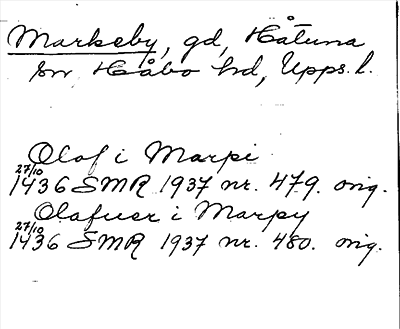 Markeby, gd, Håtuna
sn Håbo hd, Upps. l.
Olof i Marpi
27/10
1436 SMR 1937 nr. 479. orig.
Olafuer i Marpy
27/10
1436 SMR 1937 nr. 480. orig.